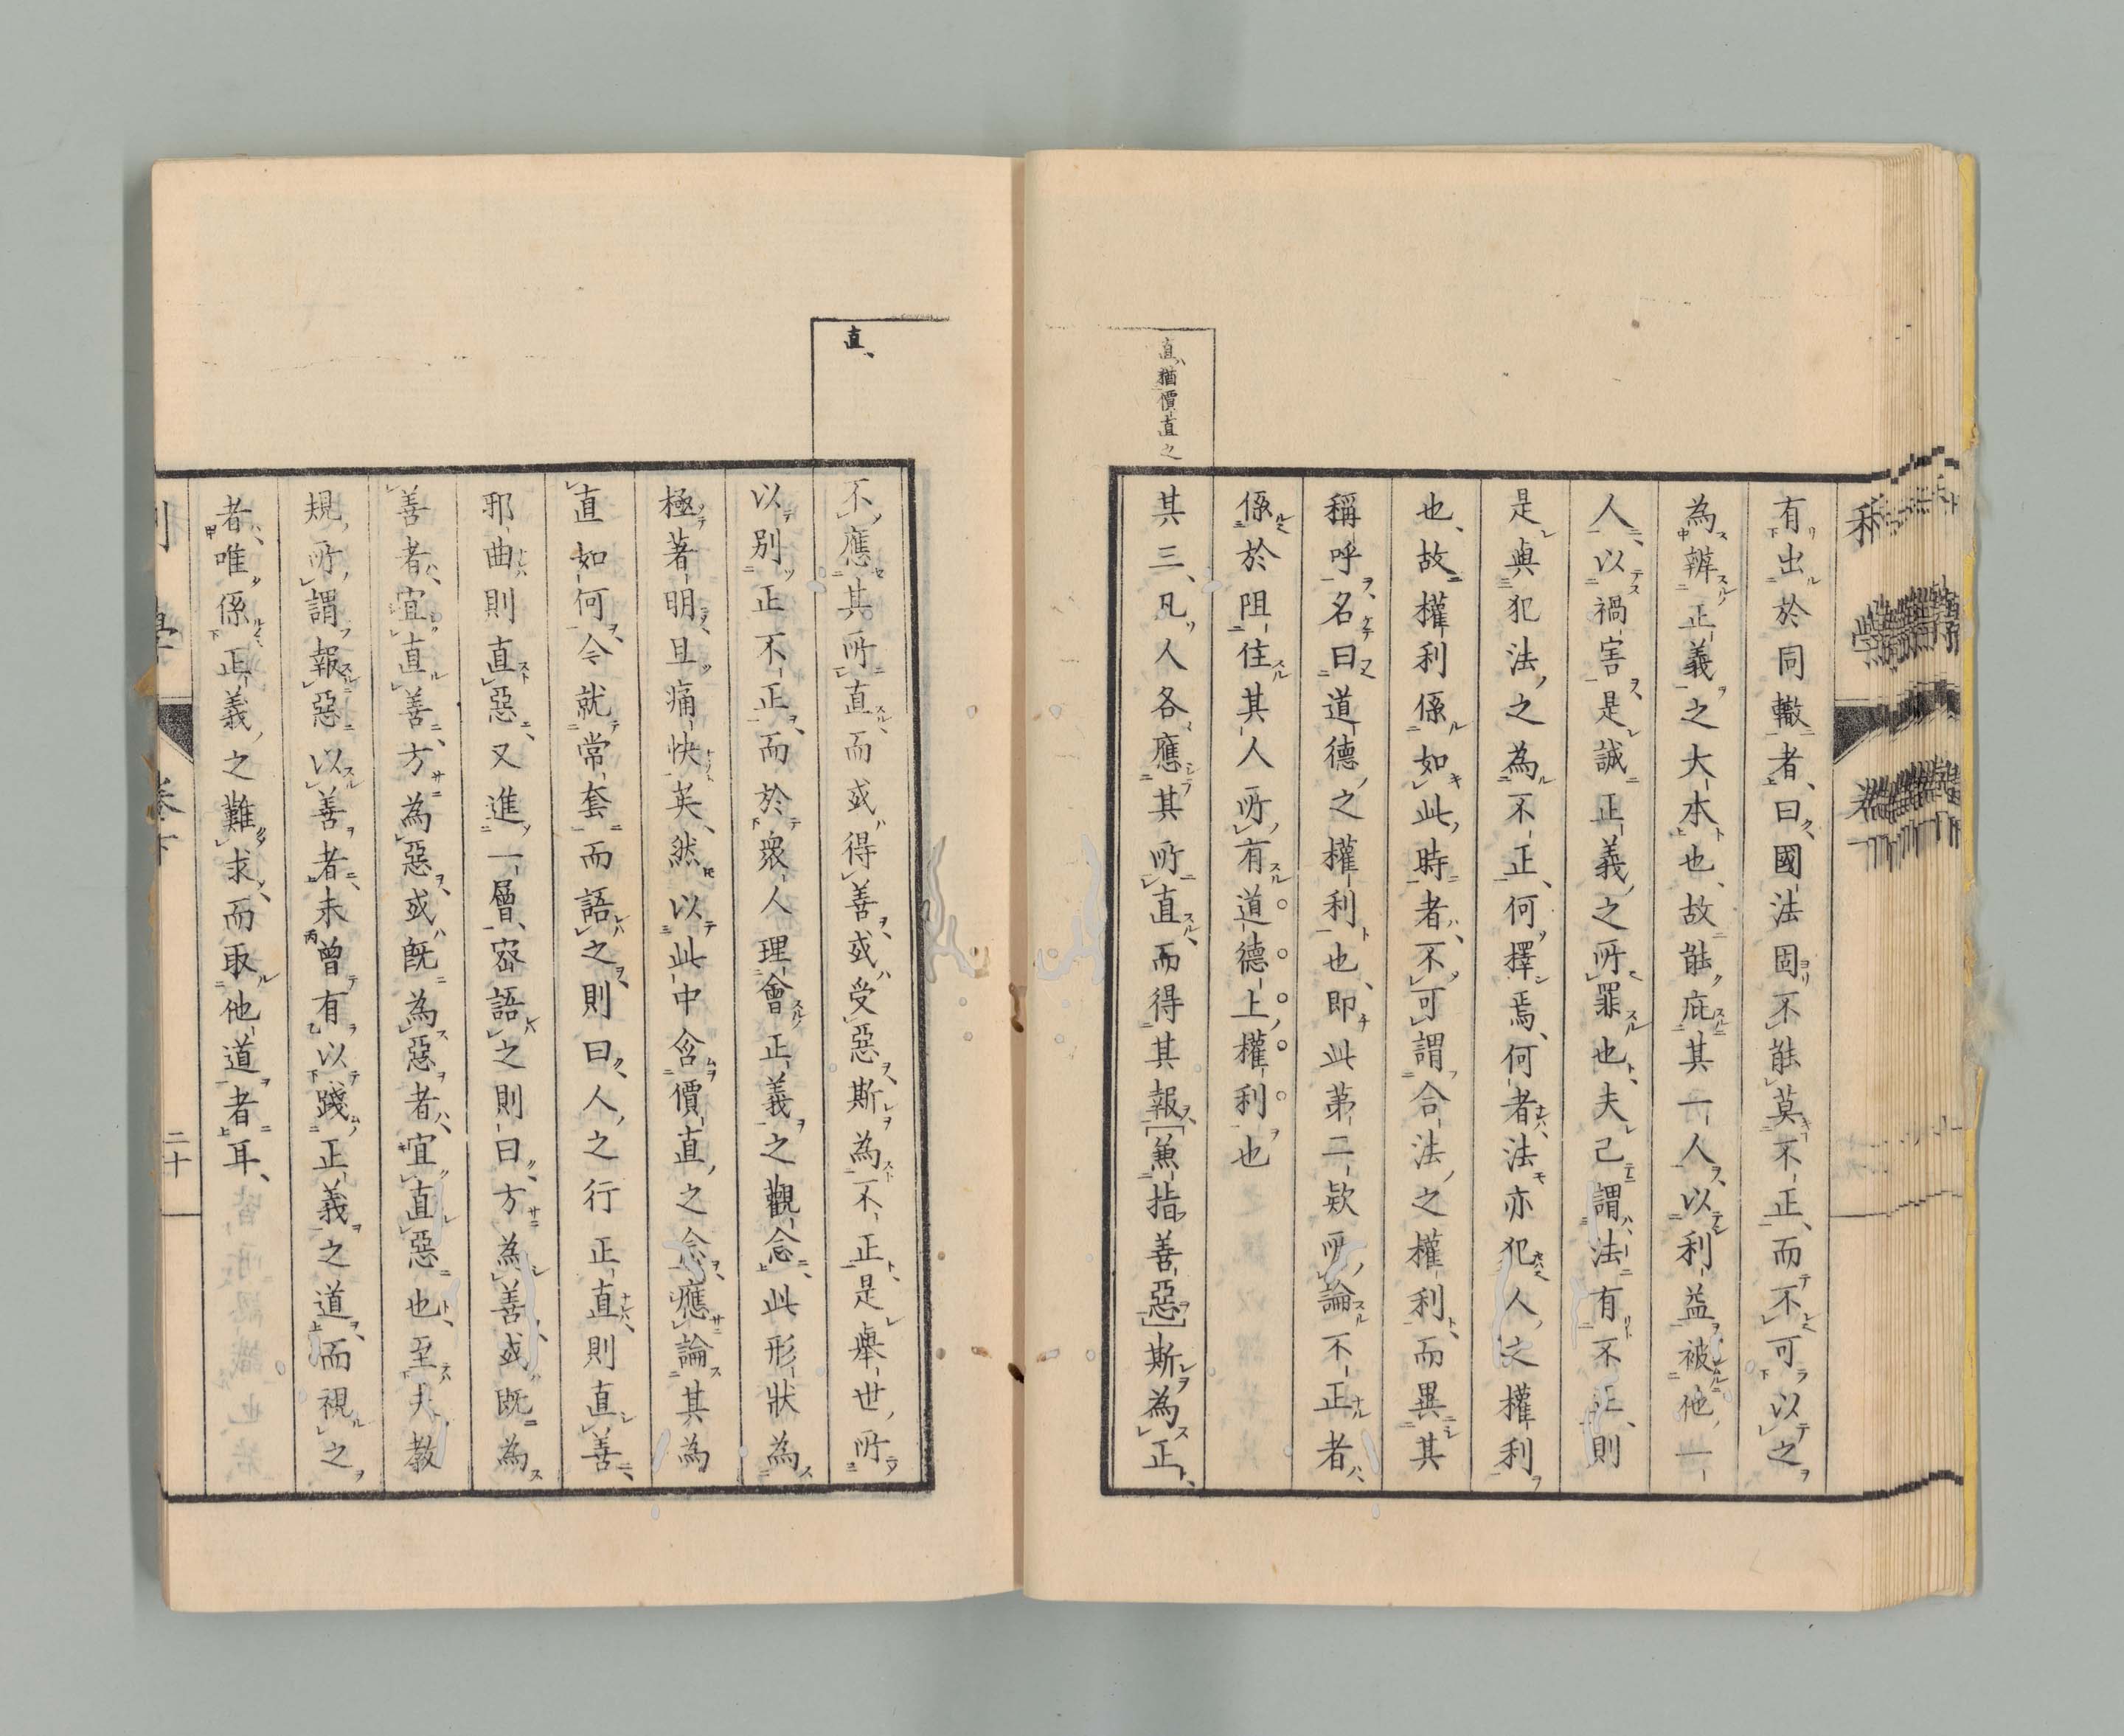 有出於同轍者、曰國法固不能莫不正、而不可以之
為辨正義之大本也、故能庇其一人、以利益被他一
人、以禍害、是誠正義之所罪也、夫己謂法有不正、則
是與犯法之為不正、何擇焉、何者法亦犯人之權利
也、故權利係如此時者、不可謂合法之權利、而異其
稱呼、名曰道德之權利也、即此第二欵所論不正者、
係於阻住其人所有道德上權利也
直、猶價直之
其三、凡人各應其所直、而得其報[兼指善惡]斯為正、
直、
不應其所直、而或得善、或受惡、斯為不正、是擧世所
以別正不正、而於衆人理會正義之觀念、此形狀為
極著明且痛快矣、然以此中含價直之念、應論其為
直如何、今就常套而語之、則曰、人之行正直則直善、
邪曲則直惡、又進一層、密語之則曰、方為善或既為
善者、宜直善、方為惡、或既為惡者、宜直惡也、至夫敎
規、所謂報惡以善者、未曾有以踐正義之道、而視之
者、唯係正義之難求、而取他道者耳、
二十